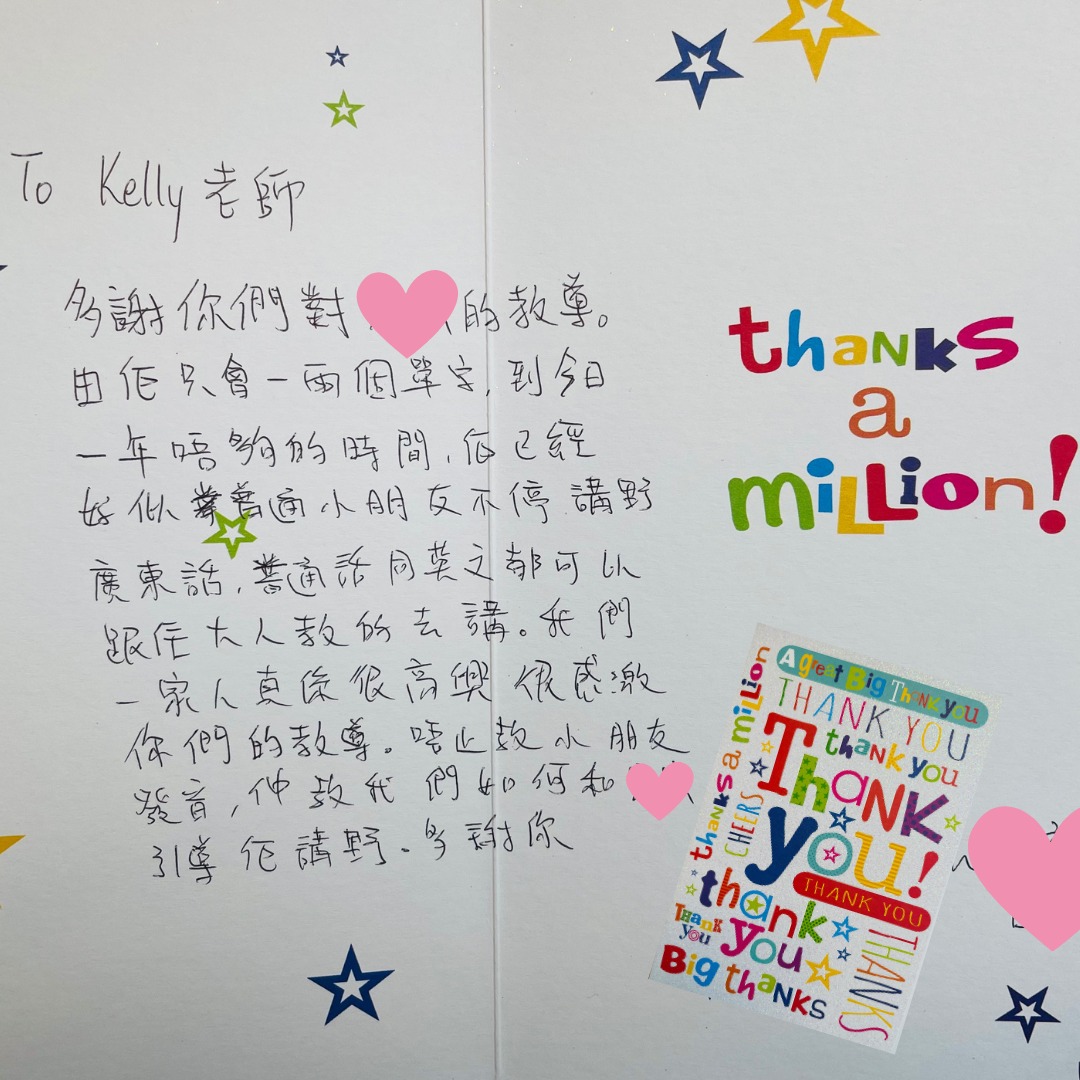 To Kelly 老師
多謝你們對 的教導。
由佢只會一兩個單字,到今日
一年唔夠的時間,佢已經
好似普通小朋友不停講野
廣東話,普通話同英文都可以
跟住大人教的去講。我們
一家人真係很高興 很感激
你們的教導。唔止教小朋友
發音,仲教我們如何和
引導佢講野。多謝你
thanks
a
million!
A great Big Thank you
THANK YOU
thank you
Thank
you!
THANK YOU
thank
you
Thank
you
Big thanks
thanks a million
CHEERS
THANKS